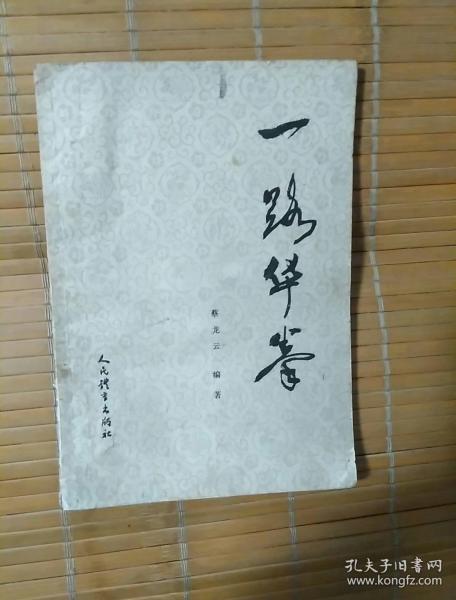 一路华拳
蔡龙云 编著
人民体育出版社
孔夫子旧书网
www.kongfz.com